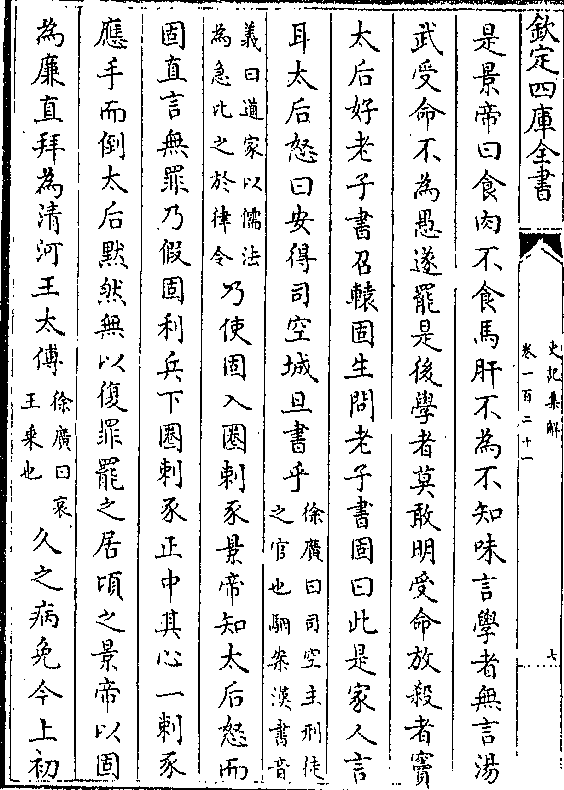 欽定四庫全書
史記集解
卷一百二十一
七
是景帝曰食肉不食馬肝不為不知味言學者無言湯
武受命不為愚遂罷是後學者莫敢明受命放殺者竇
太后好老子書召轅固生問老子書固曰此是家人言
耳太后怒曰安得司空城旦書乎
徐廣曰司空主刑徒
之官也駰案漢書音
義曰道家以儒法
為急比之於律令
乃使固入圈刺豕景帝知太后怒而
固直言無罪乃假固利兵下圈刺豕正中其心一刺豕
應手而倒太后默然無以復罪罷之居頃之景帝以固
為廉直拜為清河王太傅
徐廣曰哀
王乗也
久之病免今上初